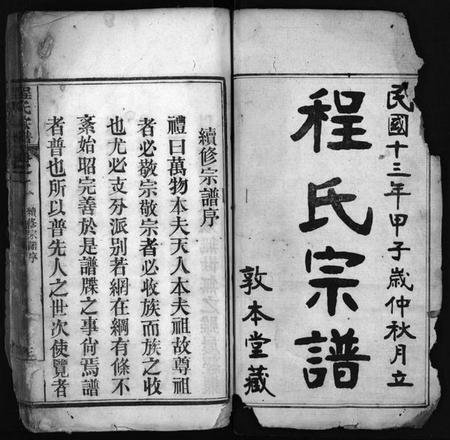 民國十三年甲子歲仲秋月立
程氏宗譜
敦本堂藏
續修宗譜序
禮曰萬物本夫天人本夫祖故尊祖
者必敬宗敬宗者必收族而族之收
也尤必支分派別若網在綱有條不
紊始昭完善於是譜牒之事尙焉譜
者普也所以普先人之世次使覽者
程氏宗譜
續修譜序